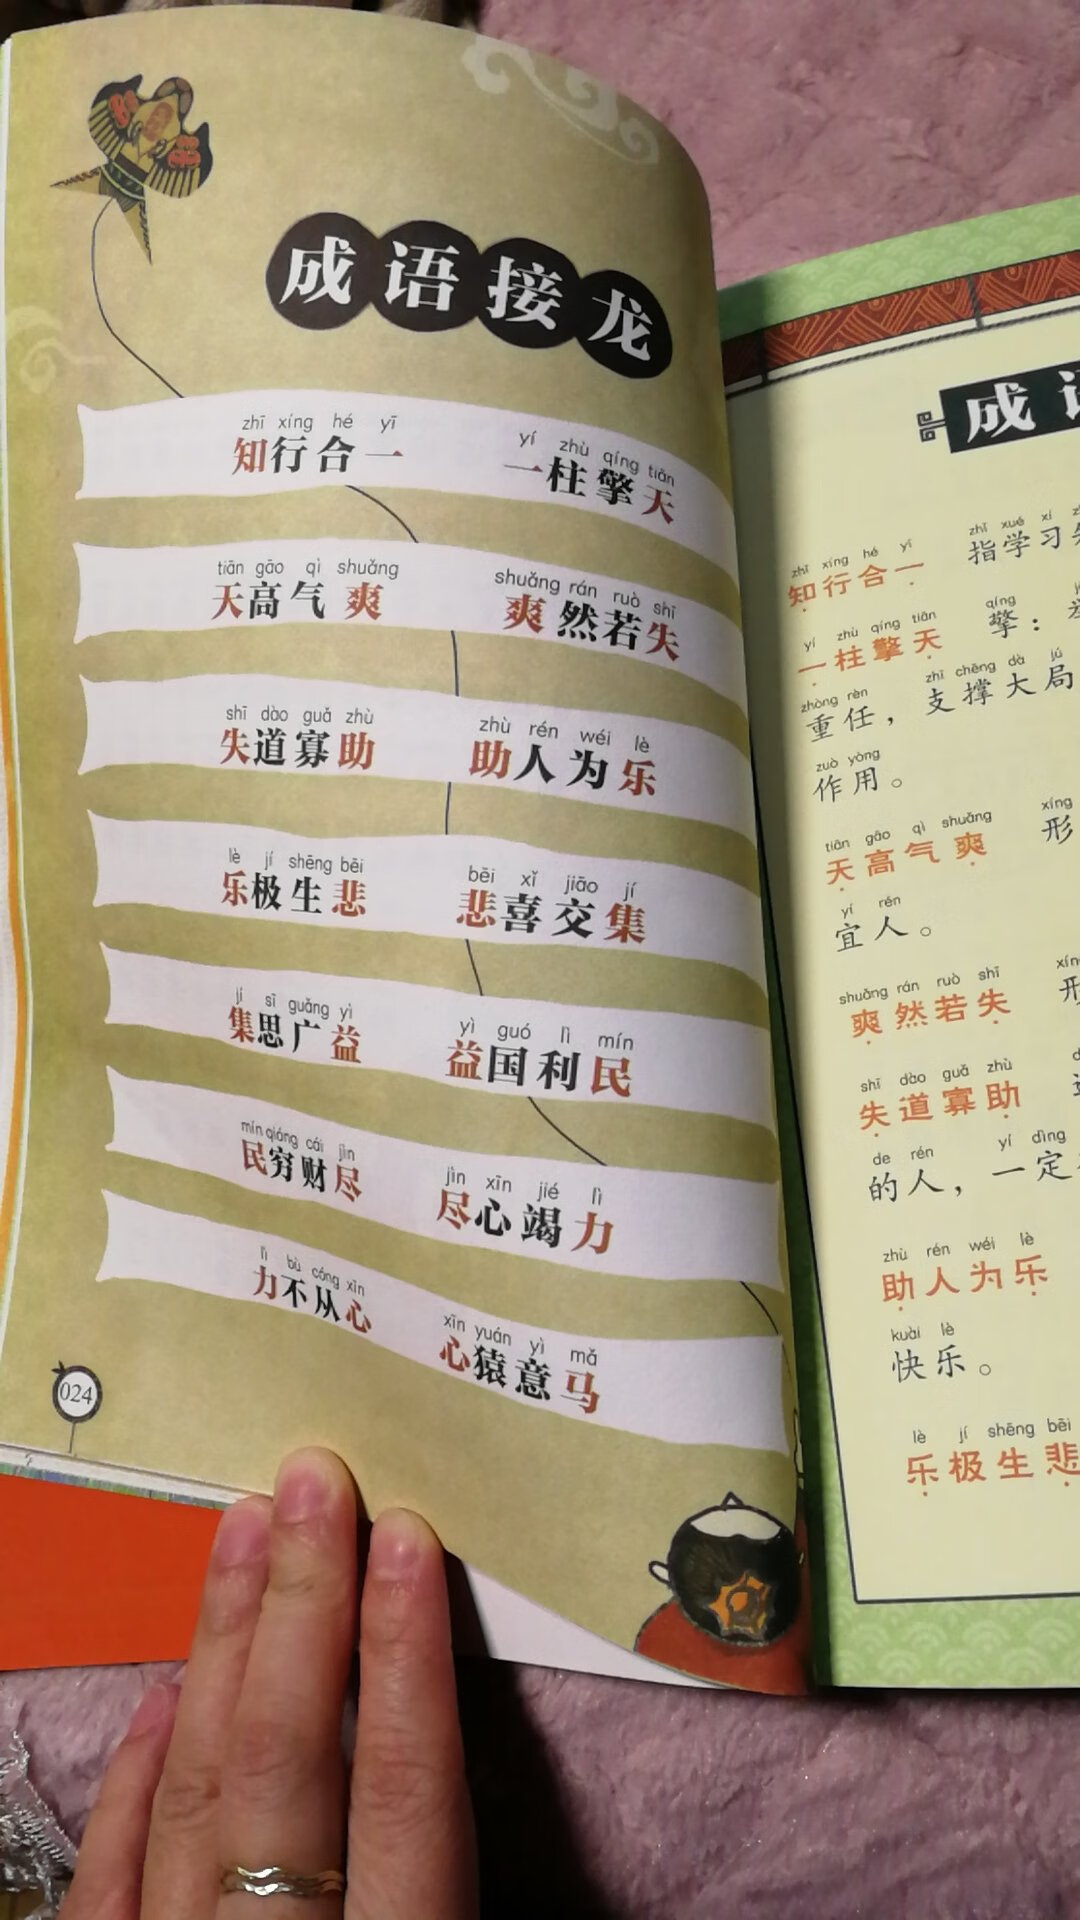 成语接龙
zhī xíng hé yī yí zhù qíng tiān
知行合一 一柱擎天
tiān gāo qì shuǎng shuǎng rán ruò shī
天高气爽 爽然若失
shī dào guǎ zhù zhù rén wéi lè
失道寡助 助人为乐
lè jí shēng bēi bēi xǐ jiāo jí
乐极生悲 悲喜交集
jí sī guǎng yì yì guó lì mín
集思广益 益国利民
mín qióng cái jìn jìn xīn jié lì
民穷财尽 尽心竭力
lì bù cóng xīn xīn yuán yì mǎ
力不从心 心猿意马
024
成
zhī xíng hé yī zhǐ xué xí
知行合一 指学习
yí zhù qíng tiān qíng
一柱擎天 擎：
zhòng rèn zhī chēng dà jú
重任，支撑大局
zuò yòng
作用。
tiān gāo qì shuǎng xíng
天高气爽 形
yí rén
宜人。
shuǎng rán ruò shī
爽然若失 形
shī dào guǎ zhù
失道寡助
de rén yí dìng
的人，一定
zhù rén wéi lè
助人为乐
kuài lè
快乐。
lè jí shēng bēi
乐极生悲